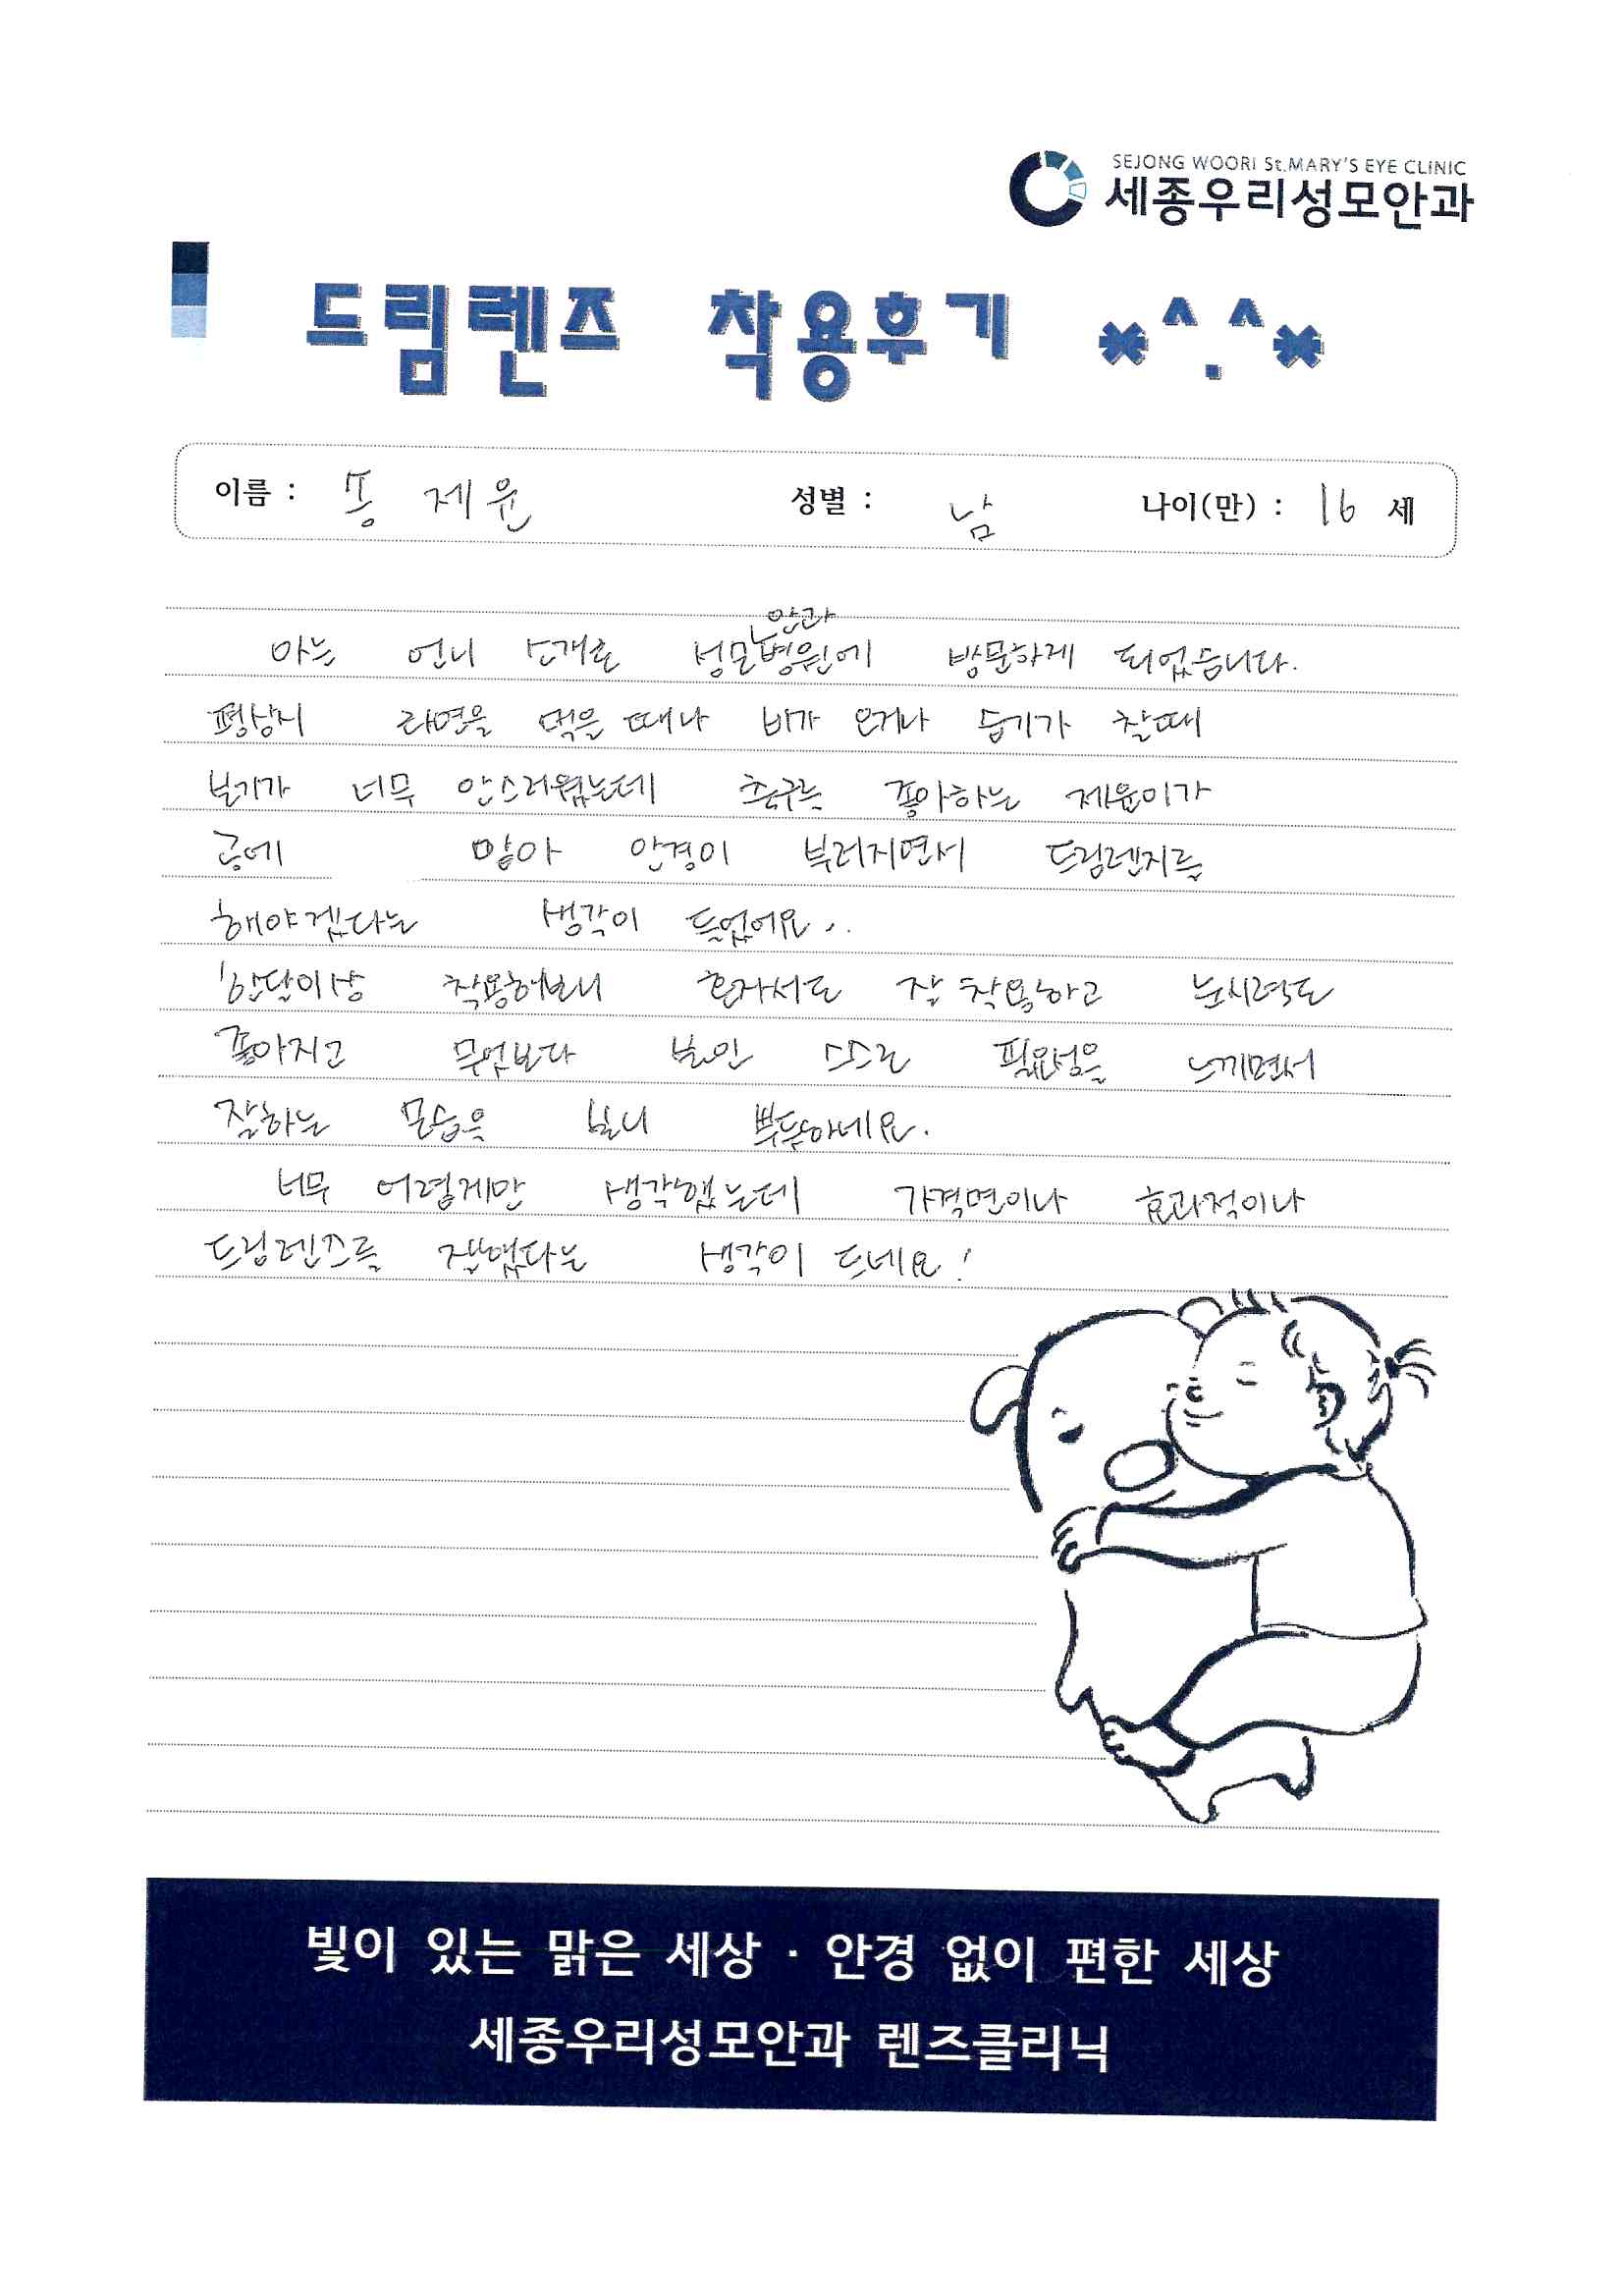 SEJONG WOORI St.MARY'S EYE CLINIC
세종우리성모안과
드림렌즈 착용후기 *^.^*
이름 : 제윤 성별 : 남 나이(만) : 16 세
안과
아는 언니 소개로 성모병원에 방문하게 되었습니다.
평상시 라면을 먹을 때나 비가 오거나 습기가 찰때
보기가 너무 안스러웠는데 축구를 좋아하는 제윤이가
공에 맞아 안경이 부러지면서 드림렌지를
해야겠다는 생각이 들었어요..
한달이상 착용해보니 혼자서도 잘 착용하고 눈시력도
좋아지고 무엇보다 본인 스스로 필요성을 느끼면서
잘하는 모습을 보니 뿌듯하네요.
너무 어렵게만 생각했는데 가격면이나 효과적이나
드림렌즈를 잘했다는 생각이 드네요!
빛이 있는 맑은 세상 · 안경 없이 편한 세상
세종우리성모안과 렌즈클리닉